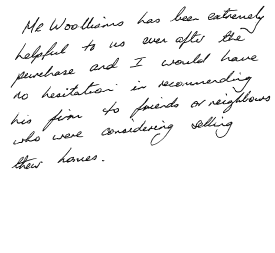 Mr Woolliams has been extremely
helpful to us even after the
purchase and I would have
no hesitation in recommending
his firm to friends or neighbours
who were considering selling
their homes.